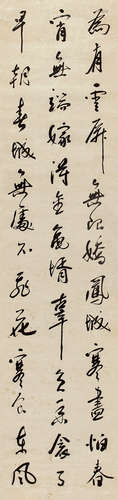 為有雲屏無限嬌鳳城寒盡怕春
宵無端嫁得金龜婿辜負香衾事
早朝春城無處不飛花寒食東風